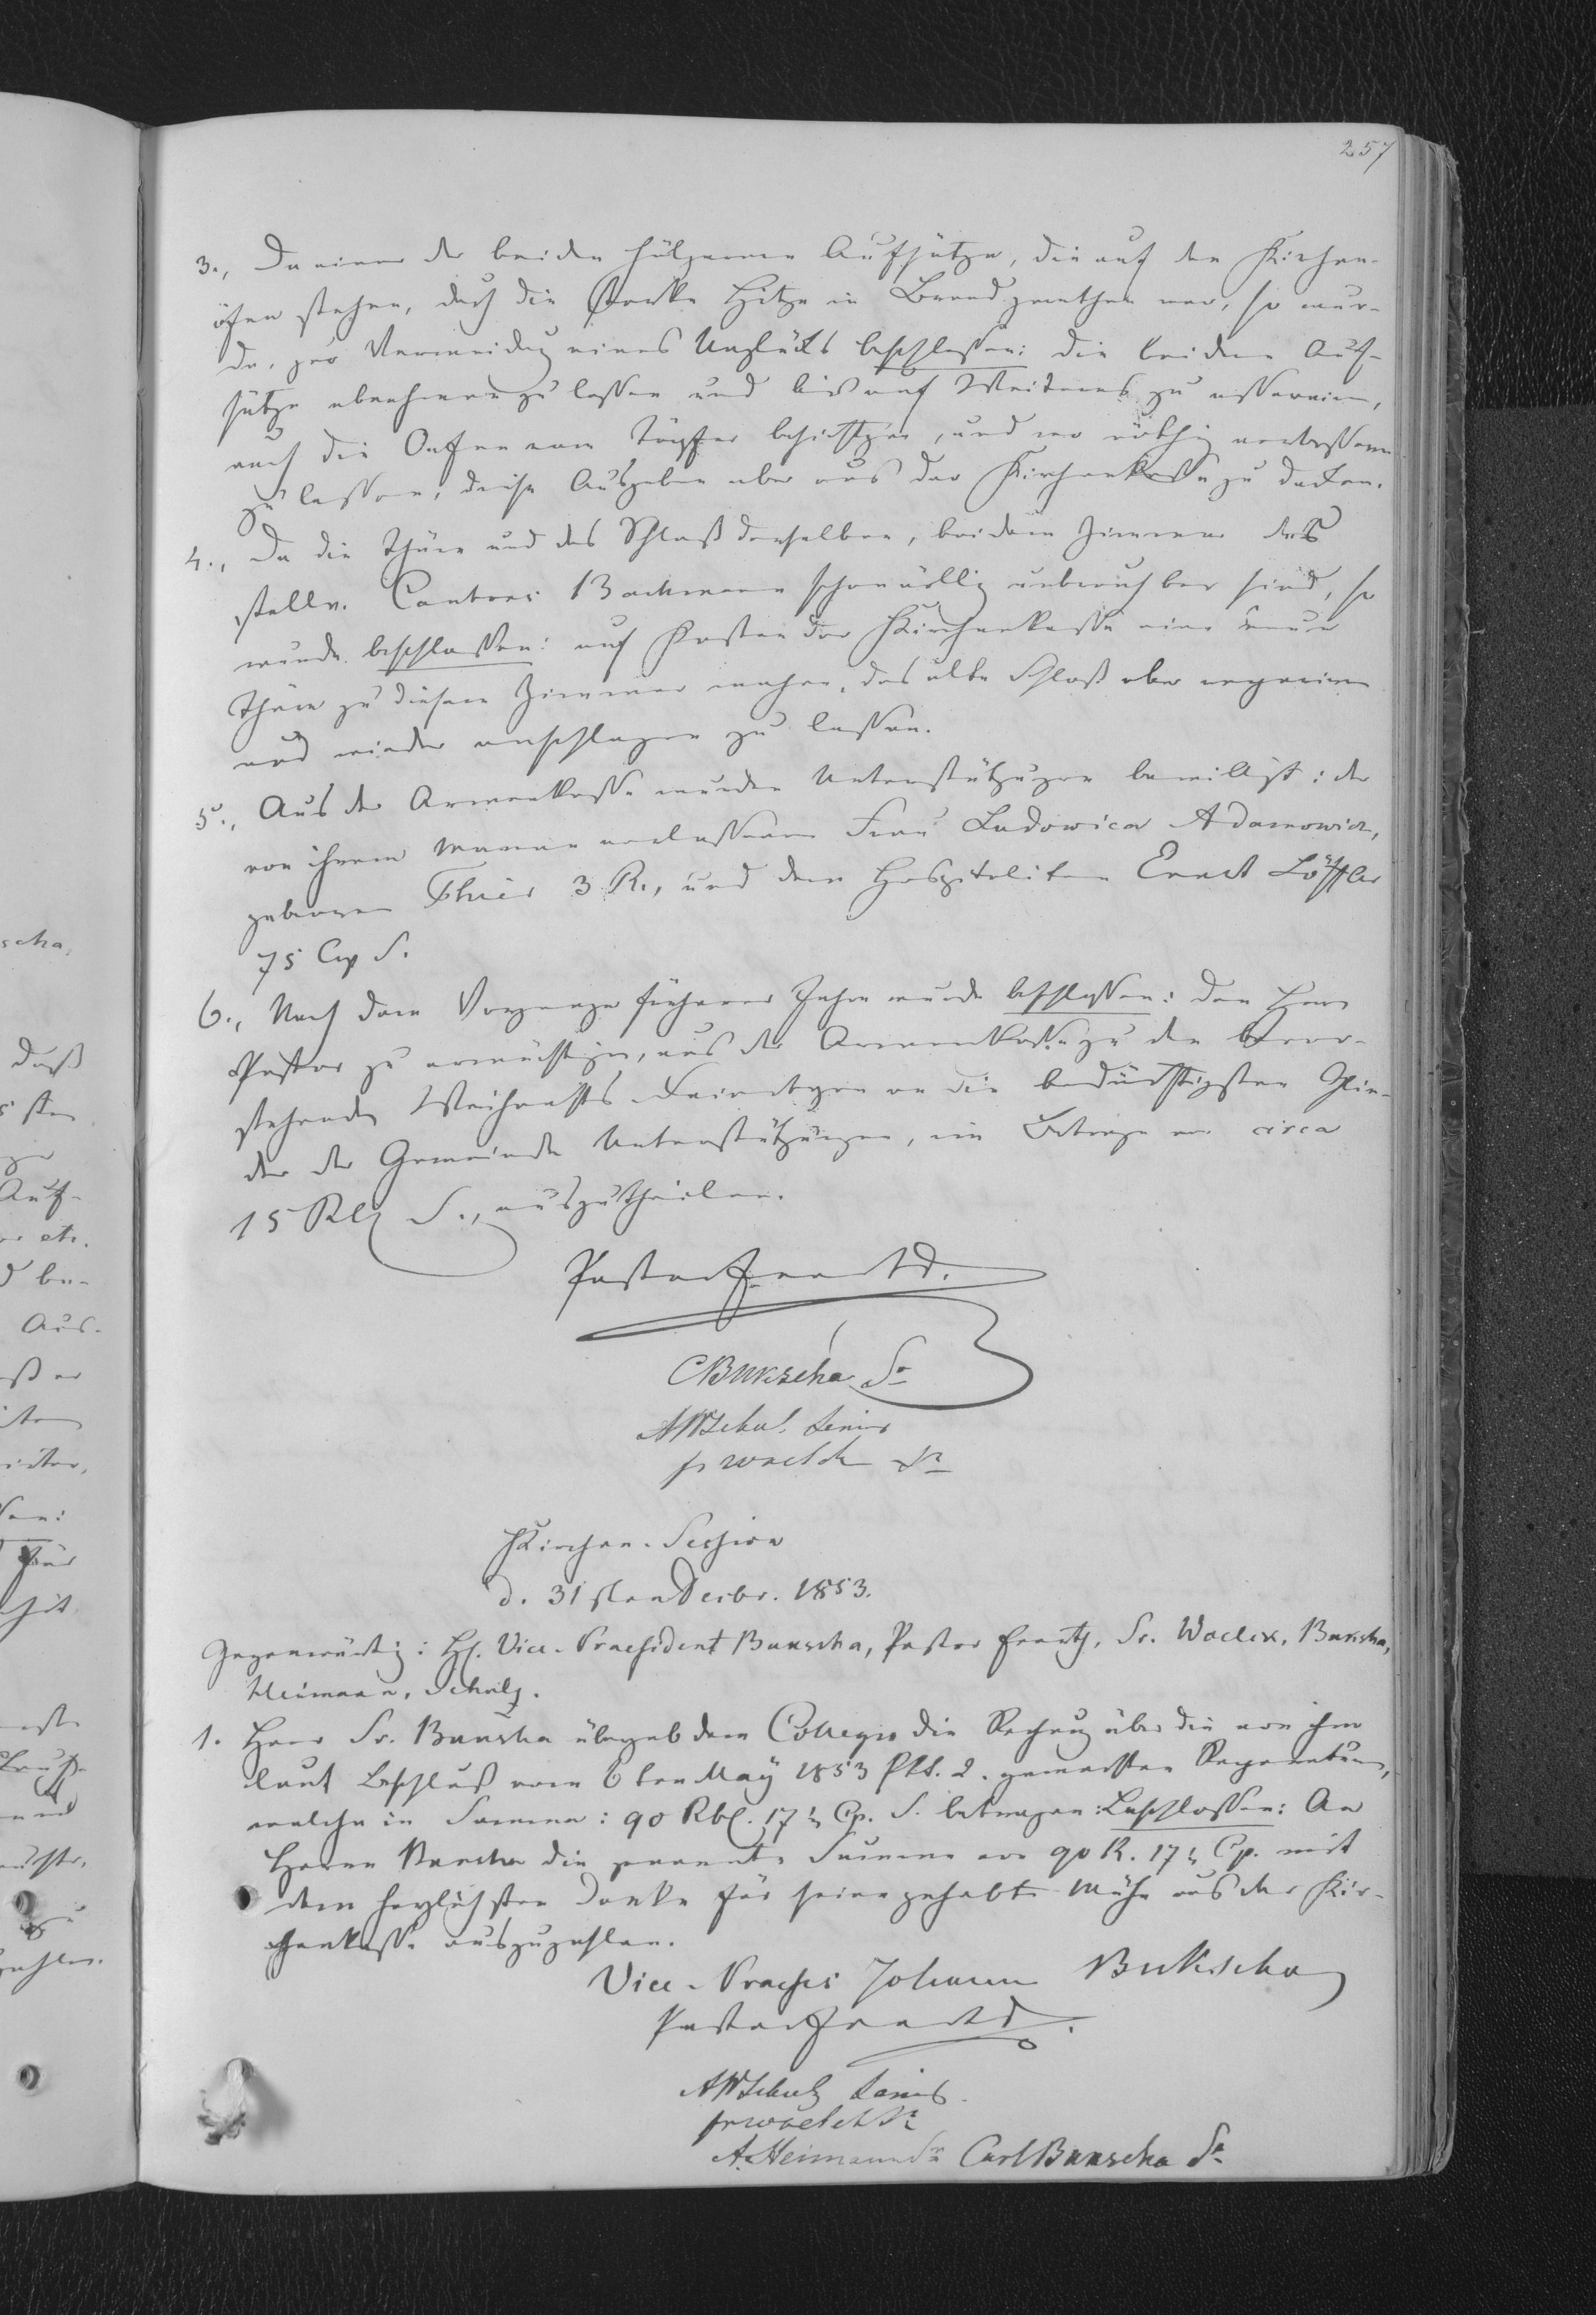 257
3., Da einer der beiden hölzernen Aufsätze, die auf den Kirchen-
öfen stehen, durch die starke Hitze in Brand gerathen war, so wur-
de, zur Vermeidung eines Unglücks beschlossen: die beiden Auf-
sätze abnehmen zu lassen und bis auf Weiteres zu asserviren,
auch die Oefen vom Töpfer besichtigen, und wo nöthig verbessern
zu lassen, diese Ausgaben aber aus der Kirchenkasse zu decken.
4., Da die Thüre und das Schloß derselben, bei dem Zimmer des
stellv. Cantors Backmann schon völlig unbrauchbar sind, so
wurde beschlossen: auf Kosten der Kirchenkasse eine neue
Thüre zu diesem Zimmer machen, das alte Schloß aber repariren
und wieder anschlagen zu lassen.
5., Aus der Armenkasse wurden Unterstützungen bewilligt: der
von ihrem Manne verlassenen Frau Ludowica Adamowicz,
geborenen Thier 3 R., und dem Hospitaliten Ernst Löffler
75 Cop S.
6., Nach dem Vorgange früherer Jahre wurde beschlossen: den Herrn
Pastor zu ermächtigen, aus der Armenkasse zu den bevor-
stehenden Weihnachts-Feiertagen an die bedürftigsten Glie-
der der Gemeinde Unterstützungen, im Betrage von circa
15 Rbl S., auszutheilen.
Pastor
C Bukscha Sr
AW Schulz Senior
Kirchen-Session
d. 31sten Decbr. 1853.
Gegenwärtig: HH. Vice-Praesident Bukscha, Pastor Frantz, Sr. Woelck, Bukscha,
Heimann, Schulz.
1. Herr Sr. Bukscha übergab dem Collegio die Rechnung über die von ihm
laut Beschluß vom 6ten May 1853 Pkt. 2. gemachten Reparaturen,
welche in Summa: 90 Rbl. 17½ Cp. S. betragen: Beschlossen: An
Herrn Bukscha die genannte Summe von 90 R. 17½ Cp. mit
dem herzlichsten Danke für seine gehabte Mühe aus der Kir-
chenkasse auszuzahlen.
Vice-Praeses Johann Bukscha
Pastor
AW Schulz Senior
A. Heimann Sr Carl Bukscha Sr